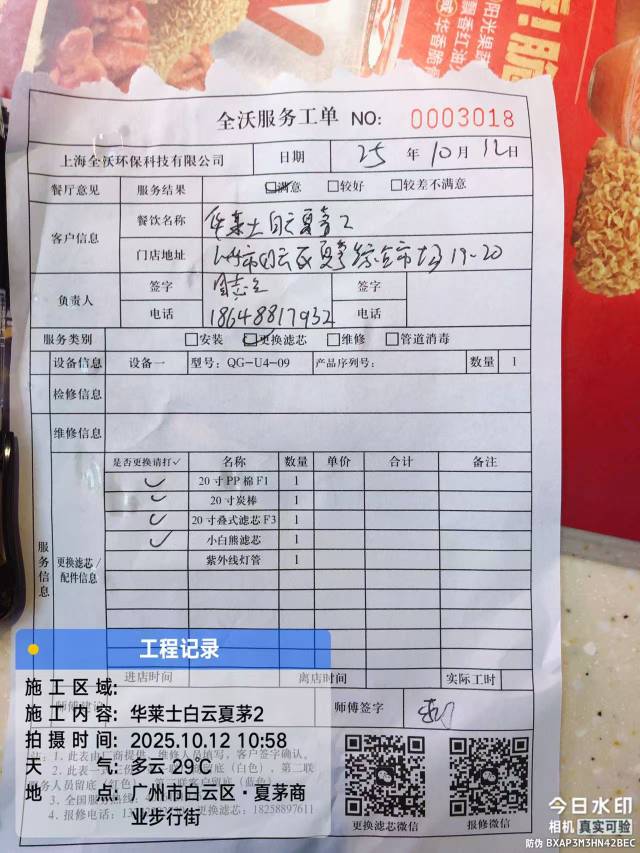 脆!
阳光果蔬
飘香红油
华香脆
全沃服务工单 NO: 0003018
上海全沃环保科技有限公司 日期 25 年 10 月 12 日
餐厅意见 服务结果 ☑满意 □较好 □较差不满意
客户信息 餐饮名称 华莱士白云夏茅2
门店地址 广州市白云区夏茅综合市场19-20
负责人 签字 签字
电话 18648817932 电话
服务类别 □安装 ☑更换滤芯 □维修 □管道消毒
设备信息 设备一 型号: QG-U4-09 产品序列号: 数量 1
检修信息
维修信息
服务信息
更换滤芯/配件信息
是否更换请打✓ 名称 数量 单价 合计 备注
✓ 20寸PP棉F1 1
✓ 20寸炭棒 1
✓ 20寸叠式滤芯F3 1
✓ 小白熊滤芯 1
紫外线灯管 1
进店时间 离店时间 实际工时
师傅签字
工程记录
施工区域:
施工内容: 华莱士白云夏茅2
拍摄时间: 2025.10.12 10:58
天气: 多云 29℃
地点: 广州市白云区·夏茅商业步行街
注: 1. 此表由厂商提供,维修人员填写,客户签字确认。
更换滤芯: 18258897611
更换滤芯微信 报修微信
今日水印
相机 真实可验
防伪 BXAP3M3HN42BEC